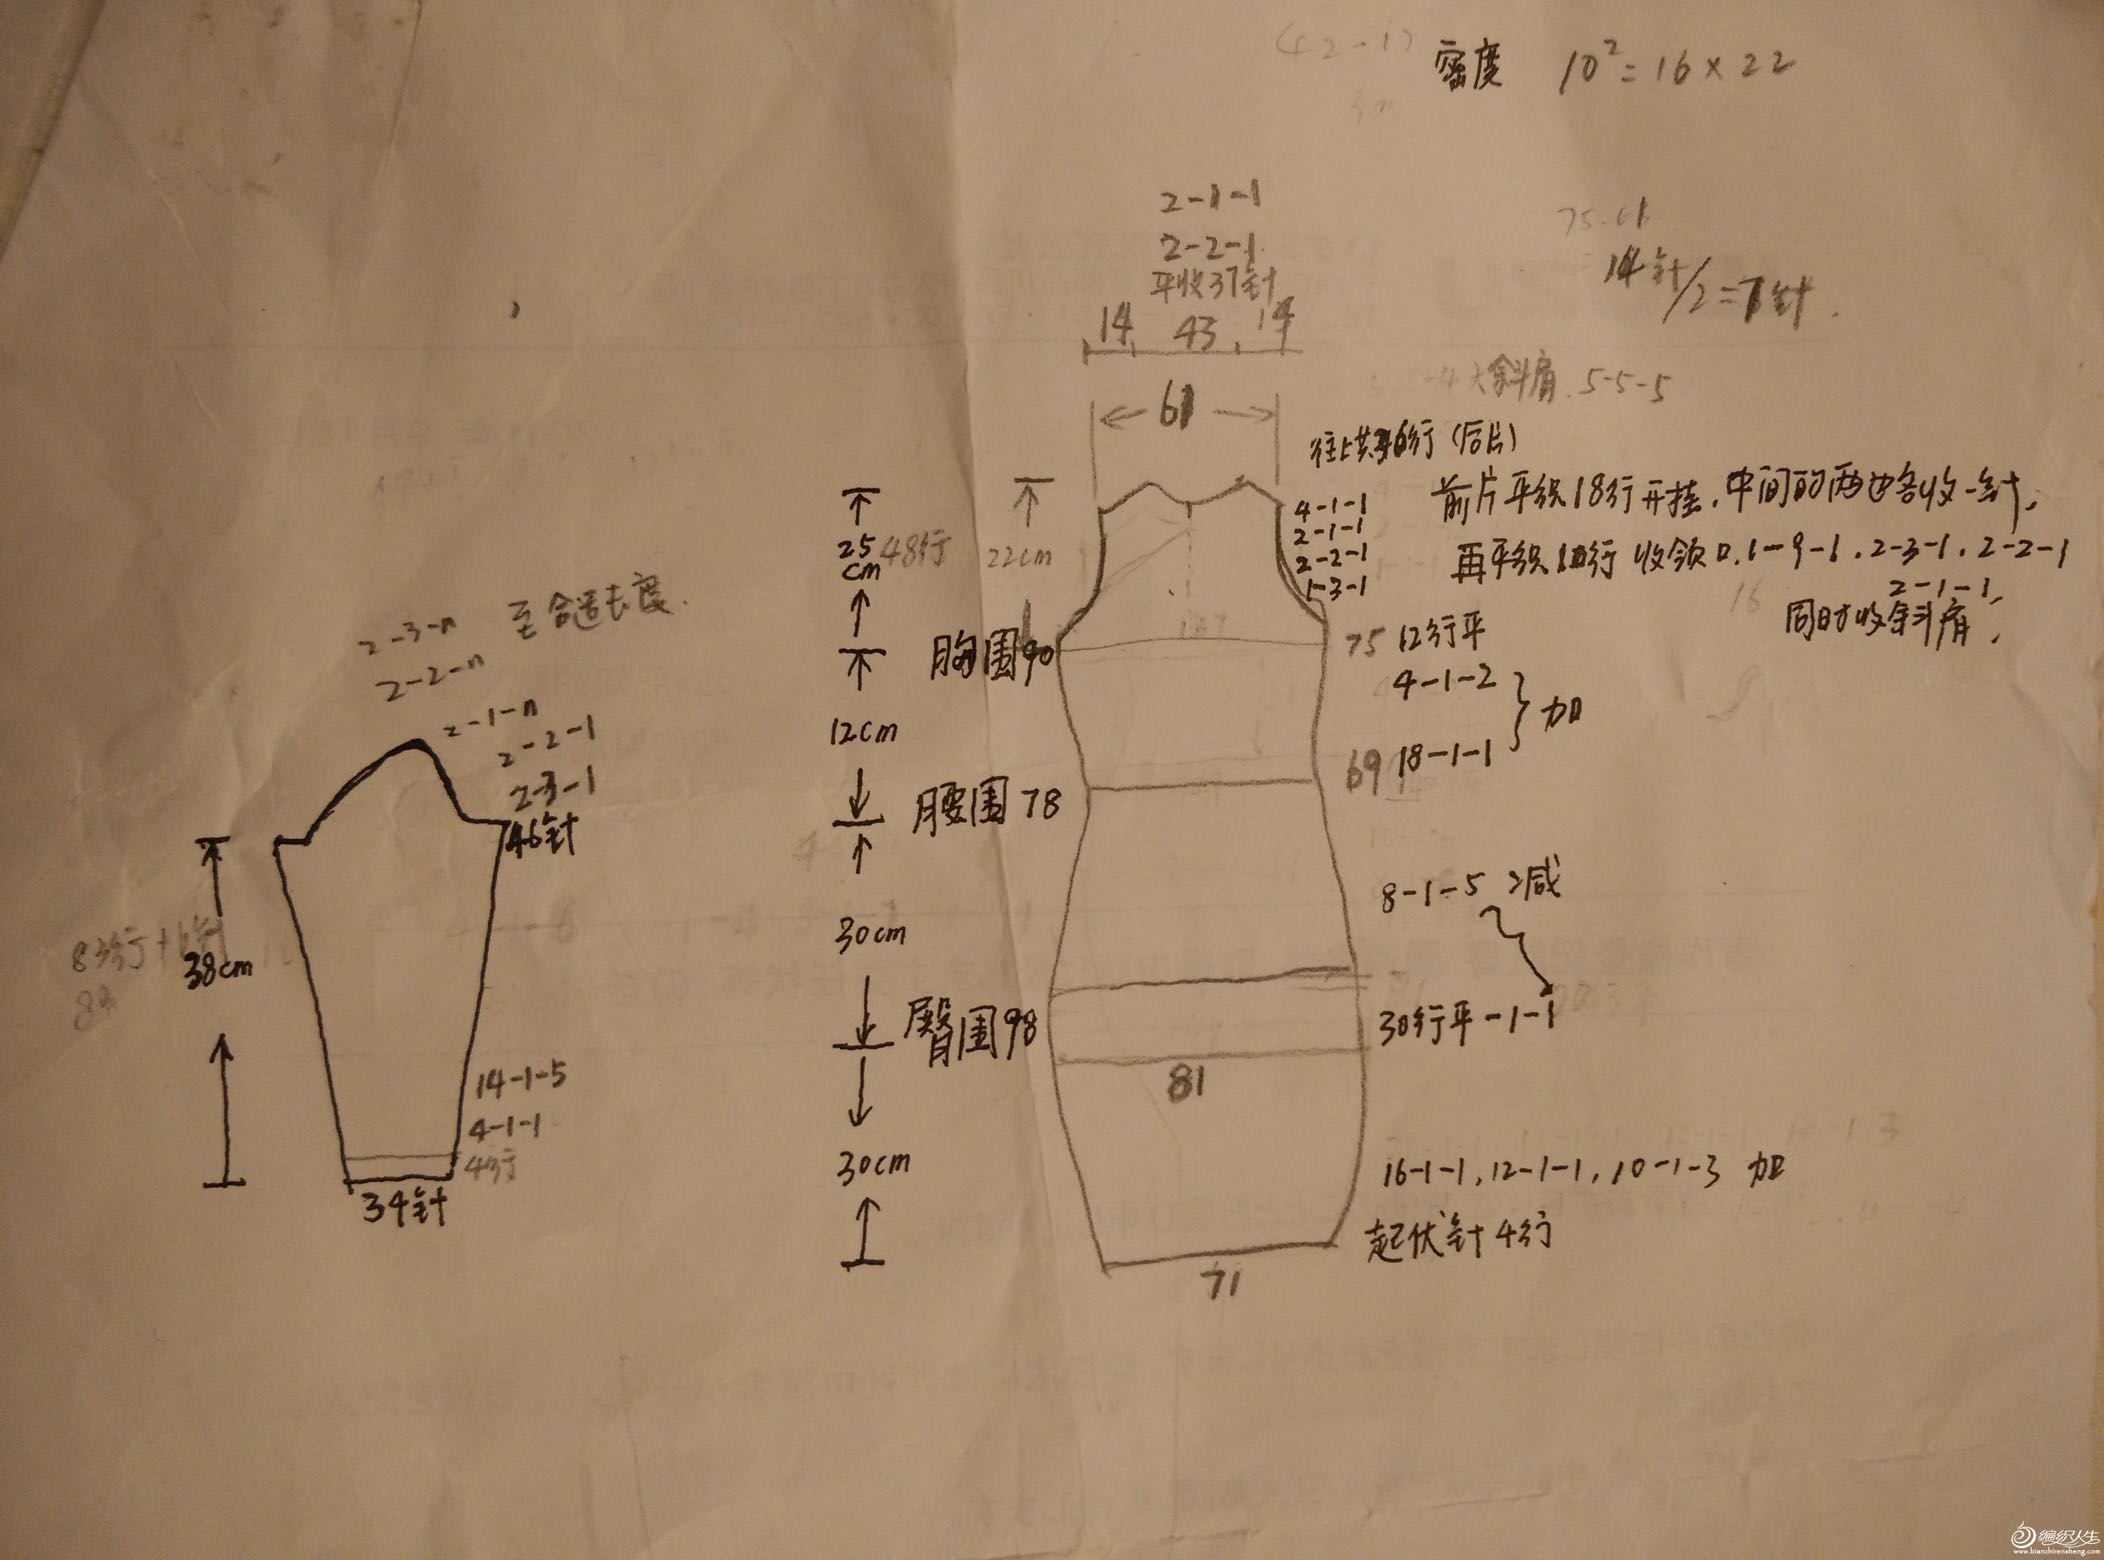 密度 10²=16×22
2-1-1
2-2-1
平收37针
14 43 14
14针/2=7针
61
斜肩.5-5-5
(后片)
4-1-1
2-1-1
2-2-1
1-3-1
前片平织18行开挂.中间的两边各收一针,
收领口.1-9-1.2-3-1.2-2-1
2-1-1,
同时收斜肩,
25cm 48行 22cm
胸围90
75 12行平
4-1-2
加
69 18-1-1
12cm
腰围78
8-1-5 减
30cm
臀围98
30行平-1-1
81
30cm
16-1-1,12-1-1,10-1-3 加
起伏针4行
71
2-3-n 至合适长度.
2-2-n
2-1-n
2-2-1
2-3-1
46针
38cm
14-1-5
4-1-1
4行
34针
编织人生
www.bianzhirensheng.com